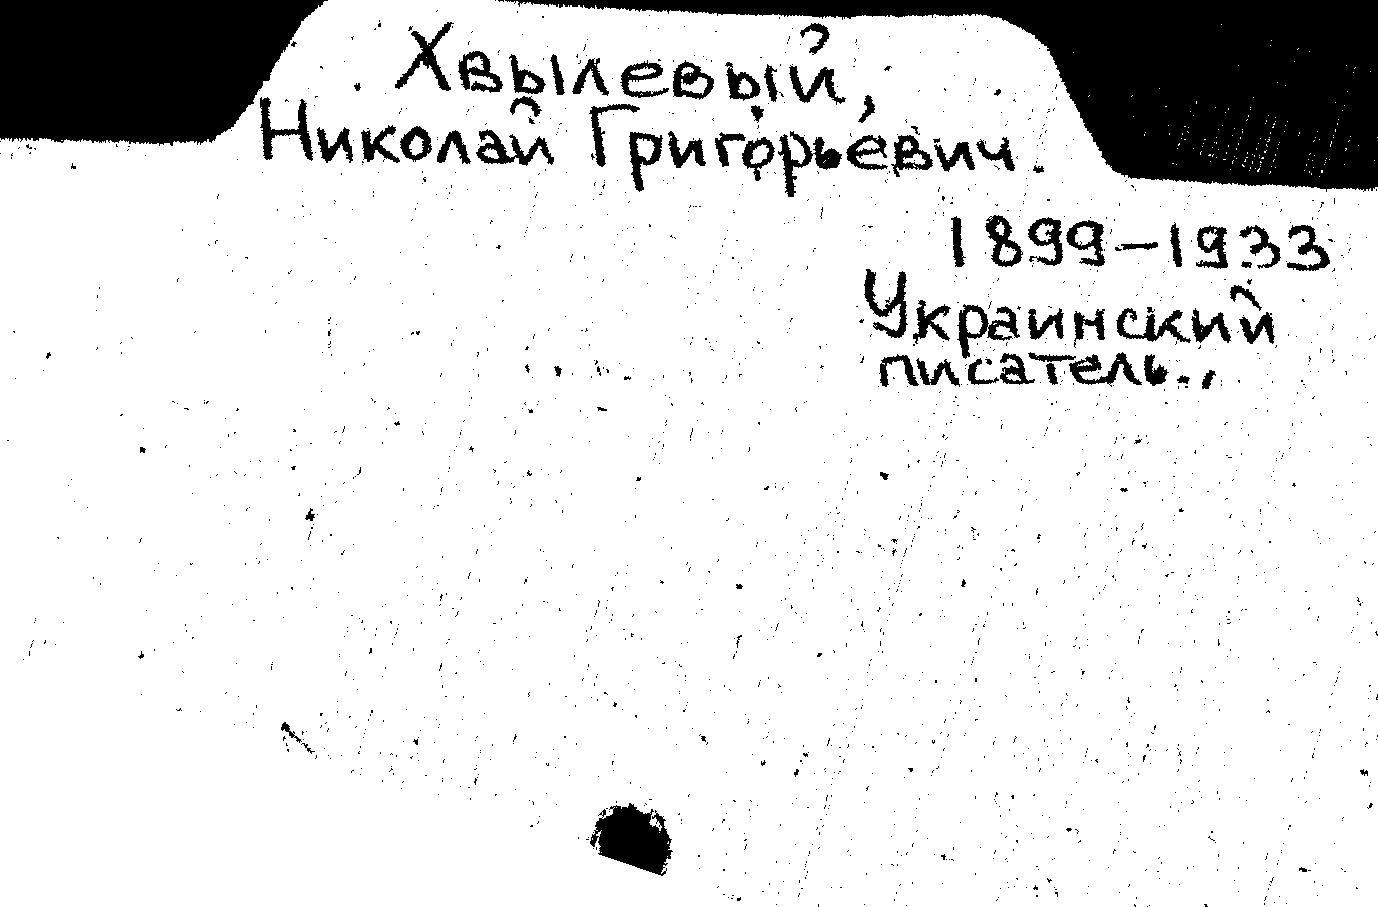 Хвылевый,
Николай Григорьевич.
1899-1933
Украинский
писатель.,